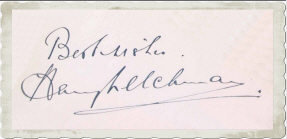 Best wishes.
Harry Welchman.